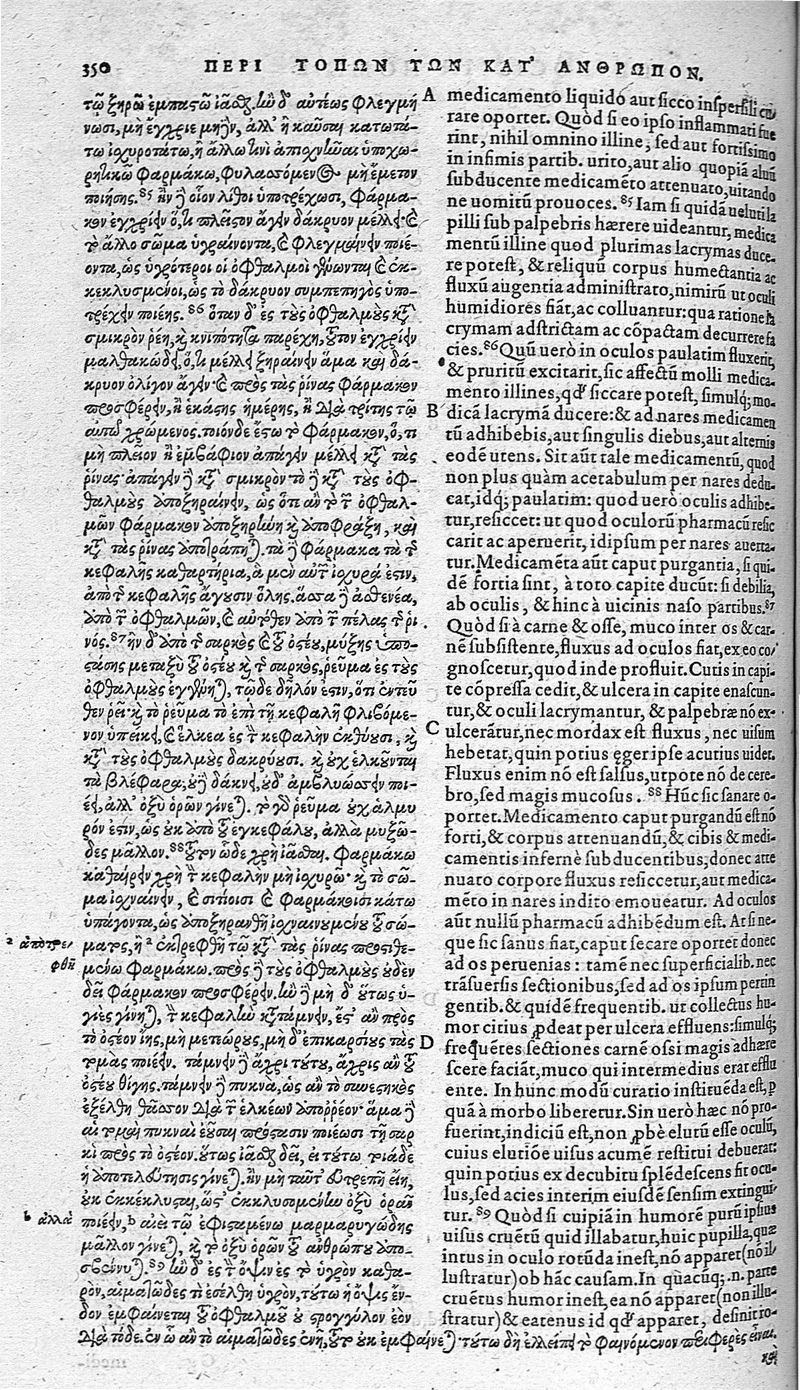 350 ΠΕΡΙ ΤΟΠΩΝ ΤΩΝ ΚΑΤ' ΑΝΘΡΩΠΟΝ.
τῷ ξηρῷ ἐμπαστῷ ἰᾶσθαι. ἢν δ' αὐτέως φλεγμή
νωσι, μὴ ἔγχριε μηδὲν, ἀλλ' ἢ καῦσαι κατωτά-
τω ἰσχυροτάτω, ἢ ἄλλῳ τινὶ ἀποχνῶσαι ὑποχω-
ρητικῷ φαρμάκῳ, φυλασσόμενος μὴ ἔμετον
ποιήσῃς. 85 ἢν δὲ οἷον λίθοι ὑποτρέχωσι, φάρμα-
κον ἐγχρίειν ὅ, τι πλεῖστον ἄγειν δάκρυον μέλλει· καὶ
τὸ ἄλλο σῶμα ὑγραίνοντα, καὶ φλεγμαίνειν ποιέ-
οντα, ὡς ὑγρότεροι οἱ ὀφθαλμοὶ γένωνται καὶ ἐκ-
κεκλυσμένοι, ὡς τὸ δάκρυον συμπεπηγὸς ὑπο-
τρέχειν ποιέῃς. 86 ὅταν δ' ἐς τοὺς ὀφθαλμοὺς κατὰ
σμικρὸν ῥέῃ, καὶ κνιπότητα παρέχῃ, τοῦτον ἐγχρίειν
μαλθακώδει, ὅ, τι μέλλει ξηραίνειν ἅμα καὶ δά-
κρυον ὀλίγον ἄγειν· καὶ πρὸς τὰς ῥῖνας φάρμακον
προσφέρειν, ἢ ἑκάστης ἡμέρης, ἢ διὰ τρίτης τῷ
αὐτῷ χρώμενος. τοιόνδε ἔστω τὸ φάρμακον, ὅ, τι
μὴ πλεῖον ἢ ἐμβάφιον ἀπάγειν μέλλει κατὰ τὰς
ῥῖνας· ἀπάγειν δὲ κατὰ σμικρὸν· τὸ δὲ κατὰ τοὺς ὀφ-
θαλμοὺς ἀποξηραίνειν, ὡς ὅτι ἂν τὸ τῶν ὀφθαλ-
μῶν φάρμακον ἀποξηρήνῃ καὶ ἀποφράξῃ, καὶ
κατὰ τὰς ῥῖνας ἀποτράπηται. τὰ δὲ φάρμακα τὰ τῆς
κεφαλῆς καθαρτήρια, ἃ μὲν αὐτῶν ἰσχυρά ἐστιν,
ἀπὸ τῆς κεφαλῆς ἄγουσιν ὅλης. ἅσσα δὲ ἀσθενέα,
ἀπὸ τῶν ὀφθαλμῶν, καὶ αὐτόθεν ἀπὸ τῆς πέλας τῆς ῥι
νός. 87 ἢν δ' ἀπὸ τῆς σαρκὸς καὶ τοῦ ὀστέου, μύξης ὑπο-
στάσης μεταξὺ τοῦ ὀστέου καὶ τῆς σαρκὸς, ῥεῦμα ἐς τοὺς
ὀφθαλμοὺς ἐγγένηται, τῷδε δῆλόν ἐστιν, ὅτι ἐντεῦ
θεν ῥεῖ· καὶ τὸ ῥεῦμα τὸ ἐπὶ τῇ κεφαλῇ φλιβόμε-
νον ὑπείκει, καὶ ἕλκεα ἐς τὴν κεφαλὴν ἐκθύουσι, καὶ
κατὰ τοὺς ὀφθαλμοὺς δακρύουσι. καὶ οὐχ ἑλκοῦνται
τὰ βλέφαρα, οὐδὲ δάκνει, οὐδ' ἀμβλυώσσειν ποι-
έει, ἀλλ' ὀξὺ ὁρῶν γίνεται. τὸ γὰρ ῥεῦμα οὐχ ἁλμυ
ρόν ἐστιν, ὡς οὐκ ἀπὸ τοῦ ἐγκεφάλου, ἀλλὰ μυξῶ-
δες μᾶλλον. 88 τοῦτον ὧδε χρὴ ἰᾶσθαι. φαρμάκῳ
καθαίρειν χρὴ τὴν κεφαλὴν μὴ ἰσχυρῷ· καὶ τὸ σῶ-
μα ἰσχναίνειν, καὶ σιτίοισι καὶ φαρμάκοισι κάτω
ὑπάγοντα, ὡς ἀποξηρανθῇ ἰσχναινομένου τοῦ σώ-
ματος, ἢ a ἐκτρεφθῇ τῷ κατὰ τὰς ῥῖνας προστιθε-
μένῳ φαρμάκῳ. πρὸς δὲ τοὺς ὀφθαλμοὺς οὐδὲν
δεῖ φάρμακον προσφέρειν. ἢν δὲ μὴ δ' οὕτως ὑ-
γιὴς γίνηται, τὴν κεφαλὴν κατατάμνειν, ἔστ' ἂν πρὸς
τὸ ὀστέον ἵῃς, μὴ μετεώρους, μὴ δ' ἐπικαρσίους τὰς
τομὰς ποιέειν. τάμνειν δὲ ἄχρι τούτου, ἄχρις ἂν τοῦ
ὀστέου θίγῃς. τάμνειν δὲ πυκνὰ, ὡς ἂν τὸ συνεστηκὸς
ἐξέλθῃ θᾶσσον διὰ τῶν ἑλκέων ἀποῤῥέον· ἅμα δὲ
αἱ τομαὶ πυκναὶ ἐοῦσαι πρόστασιν ποιέωσι τῇ σαρ
κὶ πρὸς τὸ ὀστέον. οὕτως ἰᾶσθαι δεῖ, ἐπὶ τούτῳ τοιάδε
ἡ ἀποτελεύτησις γίνεται. ἢν μὴ ταῦτ' εὐτρεπῆ εἴη,
οὐκ ἐκκέκλυσται, ὥστ' ἐκκλυσομένῳ ὀξὺ ὁρᾶν
ποιέειν, b αἰεὶ τῷ ἐφισταμένῳ μαρμαρυγώδης
μᾶλλον γίνεται, καὶ τὸ ὀξὺ ὁρῶν τοῦ ἀνθρώπου ἀπο-
σβέννυται. 89 ἢν δ' ἐς τὴν ὄψιν ἐς τὸ ὑγρὸν καθα-
ρὸν, αἱματῶδές τι ἐσέλθῃ ὑγρὸν, τούτῳ ἡ ὄψις ἔν-
δον ἐμφαίνεται τοῦ ὀφθαλμοῦ οὐ στρογγύλον ἐὸν
διὰ τόδε. ἐν ᾧ ἂν τὸ αἱματῶδες ἐνῇ, τοῦτο οὐκ ἐμφαίνεται· τούτῳ δὴ ἐλλείπει τὸ φαινόμενον περιφερὲς εἶναι.
a ἀποτρε
φθῇ
b ἀλλὰ
A medicamento liquido aut sicco inspersili cu
rare oportet. Quòd si eo ipso inflammati fue
rint, nihil omnino illine, sed aut fortissimo
in infimis partib. urito, aut alio quopiã aluũ
subducente medicamẽto attenuato, uitando
ne uomitũ prouoces. 85 Iam si quidã ueluti la
pilli sub palpebris hærere uideantur, medica
mentũ illine quod plurimas lacrymas duce-
re potest, & reliquũ corpus humectantia ac
fluxũ augentia administrato, nimirũ ut oculi
humidiores fiãt, ac colluantur: qua ratione la
crymam adstrictam ac cõpactam decurrere fa
cies. 86 Quũ uerò in oculos paulatim fluxerit,
& pruritũ excitarit, sic affectũ molli medica-
mento illines, qđ siccare potest, simulq; mo-
B dicã lacrymã ducere: & ad nares medicamen
tũ adhibebis, aut singulis diebus, aut alternis
eodẽ utens. Sit aũt tale medicamentũ, quod
non plus quàm acetabulum per nares dedu-
cat, idq; paulatim: quod uerò oculis adhibe-
tur, resiccet: ut quod oculorũ pharmacũ resic
carit ac aperuerit, id ipsum per nares auerta-
tur. Medicamẽta aũt caput purgantia, si qui-
dẽ fortia sint, à toto capite ducũt: si debilia,
ab oculis, & hinc à uicinis naso partibus. 87
Quòd si à carne & osse, muco inter os & car-
nẽ subsistente, fluxus ad oculos fiat, ex eo co/
gnoscetur, quod inde profluit. Cutis in capi-
te cõpressa cedit, & ulcera in capite enascun-
tur, & oculi lacrymantur, & palpebræ nõ ex-
C ulcerãtur, nec mordax est fluxus, nec uisum
hebetat, quin potius ęger ipse acutius uidet.
Fluxus enim nõ est salsus, utpote nõ de cere-
bro, sed magis mucosus. 88 Hũc sic sanare o-
portet. Medicamento caput purgandũ est nõ
forti, & corpus attenuandũ, & cibis & medi-
camentis infernè subducentibus, donec atte
nuato corpore fluxus resiccetur, aut medica-
mẽto in nares indito emoueatur. Ad oculos
aũt nullũ pharmacũ adhibẽdum est. At si ne-
que sic sanus fiat, caput secare oportet donec
ad os peruenias: tamẽ nec superficialib. nec
trãsuersis sectionibus, sed ad os ipsum pertin
gentib. & quidẽ frequentib. ut collectus hu-
mor citius ꝓdeat per ulcera effluens: simulq;
D frequẽtes sectiones carnẽ ossi magis adhære
scere faciãt, muco qui intermedius erat efflu
ente. In hunc modũ curatio instituẽda est, ꝑ
quã à morbo liberetur. Sin uerò hæc nõ pro-
fuerint, indiciũ est, non ꝓbè elutũ esse oculũ,
cuius elutiõe uisus acumẽ restitui debuerat:
quin potius ex decubitu splẽdescens fit ocu-
lus, sed acies interim eiusdẽ sensim extingui
tur. 89 Quòd si cuipiã in humorẽ purũ ipsius
uisus cruẽtũ quid illabatur, huic pupilla, quæ
intus in oculo rotũda inest, nõ apparet (nõ il-
lustratur) ob hãc causam. In quacũq; .n. parte
cruẽtus humor inest, ea nõ apparet (non illu-
stratur) & eatenus id qđ apparet, definit ro-